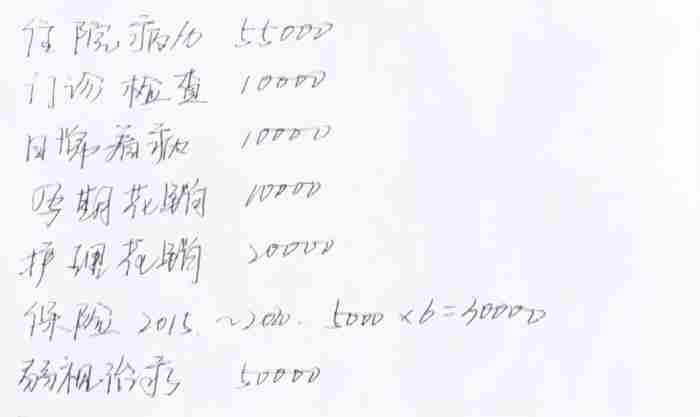 住院病人 55000
门诊检查 10000
日常看病 10000
孕期花销 10000
护理花销 20000
保险 2015.~2020. 5000×6=30000
弱视治疗 50000